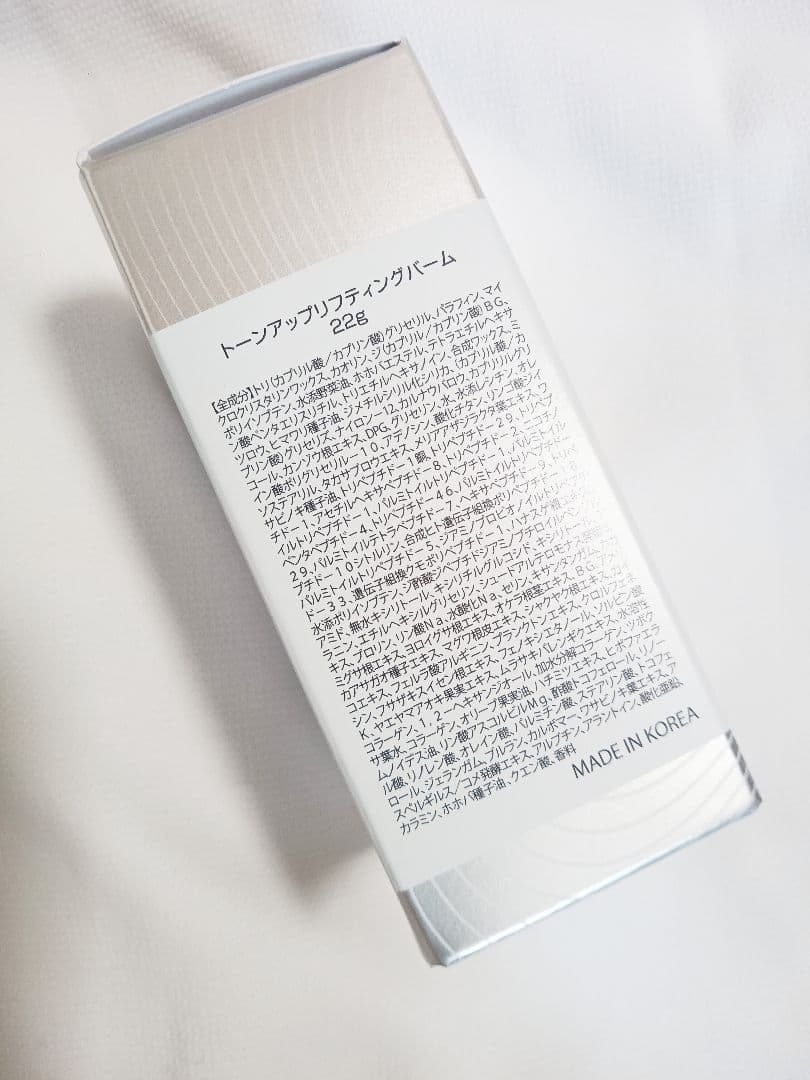 トーンアップリフティングバーム
22g
【全成分】トリ(カプリル酸/カプリン酸)グリセリル、パラフィン、マイ
クロクリスタリンワックス、カオリン、ジ(カプリル/カプリン酸)BG、
ポリイソブテン、水添野菜油、ホホバエステル、テトラエチルヘキサ
ン酸ペンタエリスリチル、トリエチルヘキサノイン、合成ワックス、ミ
ツロウ、ヒマワリ種子油、ジメチルシリル化シリカ、(カプリル酸/カ
プリン酸)グリセリズ、ナイロン-12、カルナウバロウ、カプリリルグリ
コール、カンゾウ根エキス、DPG、グリセリン、水、水添レシチン、オレ
イン酸ポリグリセリル-10、アデノシン、酸化チタン、リンゴ酸ジイ
ソステアリル、タカサブロウエキス、メリアアザジラクタ葉エキス、ワ
サビノキ種子油、トリペプチド-1銅、トリペプチド-29、トリペプ
チド-1、アセチルヘキサペプチド-8、トリペプチド-1、ニコチノ
イルトリペプチド-1、パルミトイルトリペプチド-1、パルミトイル
ペンタペプチド-4、トリペプチド-46、パルミトイルトリペプチド-
29、パルミトイルテトラペプチド-7、ヘキサペプチド-9、トリペ
プチド-10シトルリン、合成ヒト遺伝子組換ポリペプチド
パルミトイルトリペプチド-5、ジアミノプロピオノイルトリペプチ
ド-33、遺伝子組換クモポリペプチド-1、ハチスゲ根
水添ポリイソブテン、ジ酢酸ジペプチドジアミノブチロイルベンジル
アミド、無水キシリトール、キシリチルグルコシド、キシリトール
ラニン、エチルヘキシルグリセリン、シュードアルテロモナス
キス、プロリン、リン酸Na、水酸化Na、セリン、キサンタンガム、
ミグサ根エキス、ヨロイグサ根エキス、オケラ根茎エキス、BG、
カアサガオ種子エキス、マグワ根皮エキス、シャクヤク根エキス、
コエキス、フェルラ酸アルギニン、プランクトンエキス、クロルフェネ
シン、フサザキスイセン根エキス、フェノキシエタノール、ソルビン酸
K、ヤエヤマアオキ果実エキス、ムラサキバレンギクエキス、水溶性
コラーゲン、1,2-ヘキサンジオール、加水分解コラーゲン、ツボク
サ葉水、コラーゲン、オリーブ果実油、ハチミツエキス、ヒポファエラ
ムノイデス油、リン酸アスコルビルMg、酢酸トコフェロール、リノー
ル酸、リノレン酸、オレイン酸、パルミチン酸、ステアリン酸、トコフェ
ロール、ジェランガム、プルラン、カルボマー、ワサビノキ葉エキス、ア
スペルギルス/コメ発酵エキス、アルブチン、アラントイン、酸化亜鉛、
カラミン、ホホバ種子油、クエン酸、香料
MADE IN KOREA